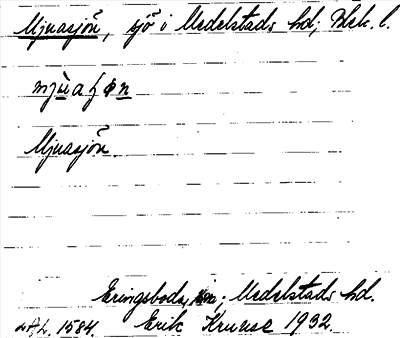 Mjuasjön, sjö i Medelstads hd; Blek. l.
mjùaʃøn
Mjuasjön.
Eringsboda, sn; Medelstads hd.
LAL. 1584. Erik Kruuse 1932.